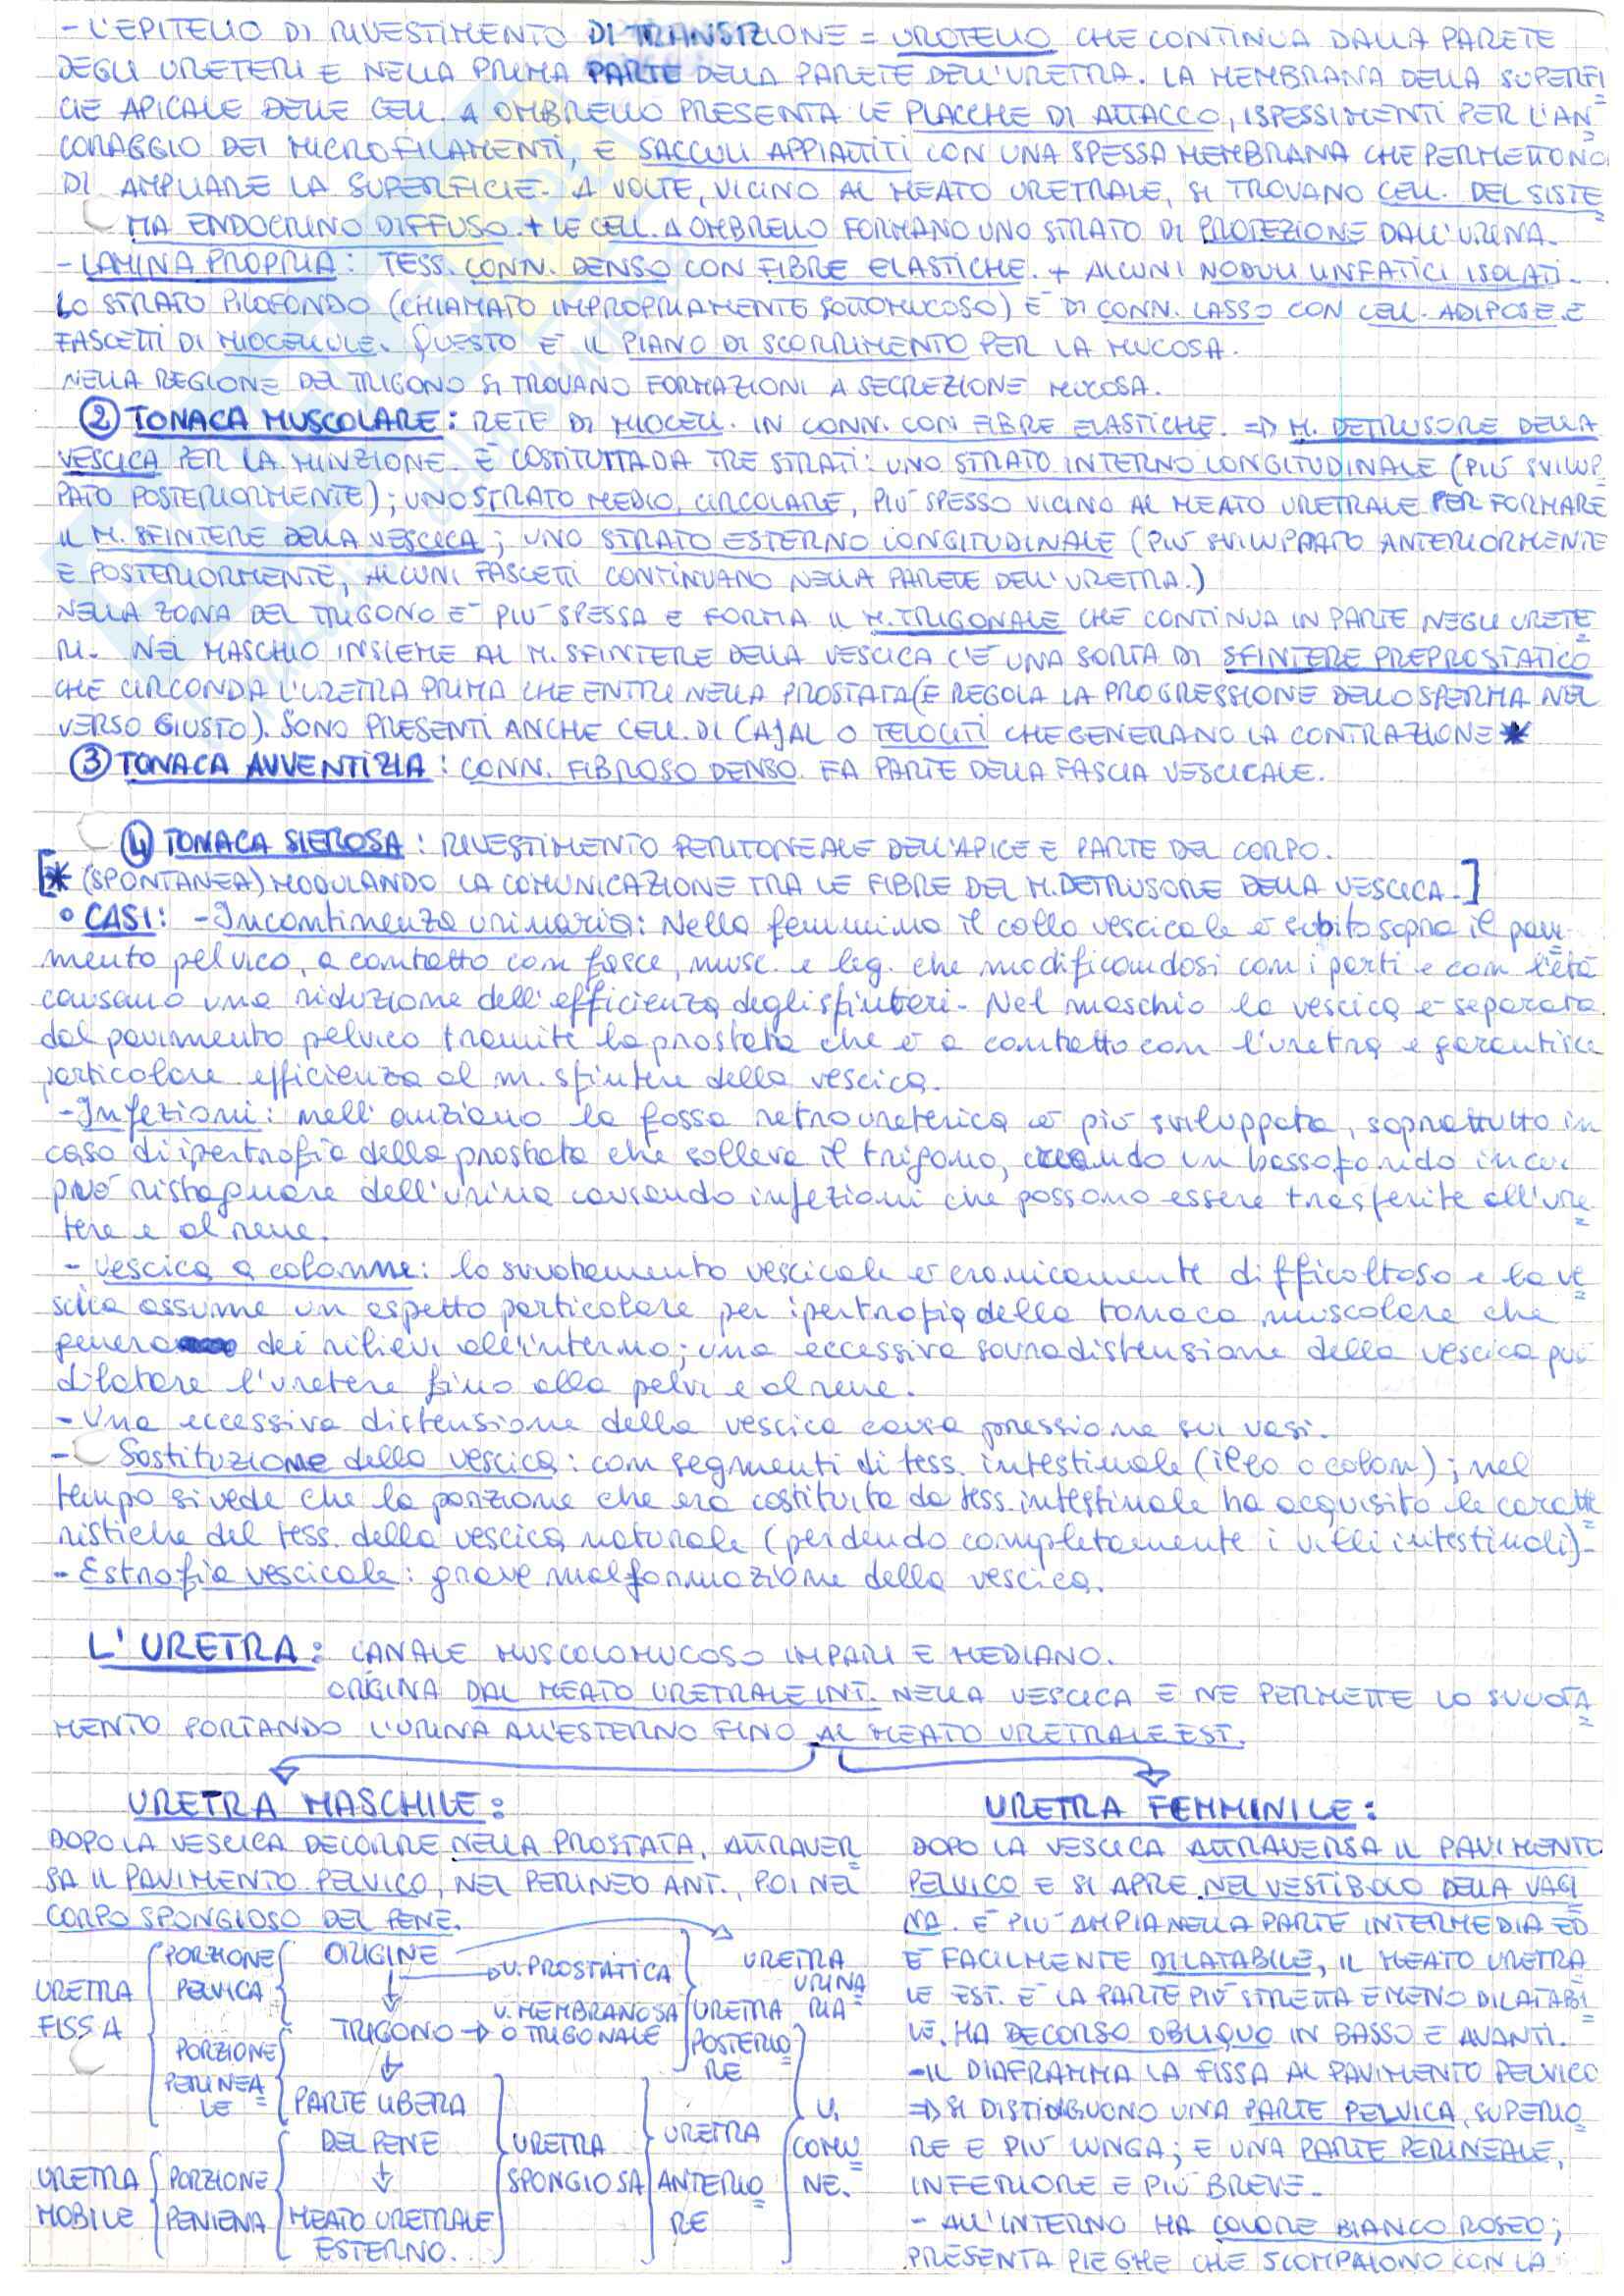 - L'EPITELIO DI RIVESTIMENTO DI TRANSIZIONE = UROTELIO CHE CONTINUA DALLA PARETE
DEGLI URETERI E NELLA PRIMA PARTE DELLA PARETE DELL'URETRA. LA MEMBRANA DELLA SUPERFI
CIE APICALE DELLE CELL. A OMBRELLO PRESENTA LE PLACCHE DI ATTACCO, ISPESSIMENTI PER L'AN
CORAGGIO DEI MICROFILAMENTI, E SACCULI APPIATTITI CON UNA SPESSA MEMBRANA CHE PERMETTONO
DI AMPLIARE LA SUPERFICIE. A VOLTE, VICINO AL MEATO URETRALE, SI TROVANO CELL. DEL SISTE
MA ENDOCRINO DIFFUSO. + LE CELL. A OMBRELLO FORMANO UNO STRATO DI PROTEZIONE DALL'URINA.
- LAMINA PROPRIA: TESS. CONN. DENSO CON FIBRE ELASTICHE. + ALCUNI NODULI LINFATICI ISOLATI.
LO STRATO PIÙ FONDO (CHIAMATO IMPROPRIAMENTE SOTTOMUCOSO) È DI CONN. LASSO CON CELL. ADIPOSE E
FASCETTI DI MIOCELLULE. QUESTO È IL PIANO DI SCORRIMENTO PER LA MUCOSA.
NELLA REGIONE DEL TRIGONO SI TROVANO FORMAZIONI A SECREZIONE MUCOSA.
② TONACA MUSCOLARE: RETE DI MIOCELL. IN CONN. CON FIBRE ELASTICHE. ⇒ M. DETRUSORE DELLA
VESCICA PER LA MINZIONE. È COSTITUITA DA TRE STRATI: UNO STRATO INTERNO LONGITUDINALE (PIÙ SVILUP
PATO POSTERIORMENTE); UNO STRATO MEDIO CIRCOLARE, PIÙ SPESSO VICINO AL MEATO URETRALE PER FORMARE
IL M. SFINTERE DELLA VESCICA; UNO STRATO ESTERNO LONGITUDINALE (PIÙ SVILUPPATO ANTERIORMENTE
E POSTERIORMENTE, ALCUNI FASCETTI CONTINUANO NELLA PARETE DELL'URETRA.)
NELLA ZONA DEL TRIGONO È PIÙ SPESSA E FORMA IL M. TRIGONALE CHE CONTINUA IN PARTE NEGLI URETE
RI. NEL MASCHIO INSIEME AL M. SFINTERE DELLA VESCICA C'È UNA SORTA DI SFINTERE PREPROSTATICO
CHE CIRCONDA L'URETRA PRIMA CHE ENTRI NELLA PROSTATA (E REGOLA LA PROGRESSIONE DELLO SPERMA NEL
VERSO GIUSTO). SONO PRESENTI ANCHE CELL. DI CAJAL O TELOCITI CHE GENERANO LA CONTRAZIONE *
③ TONACA AVVENTIZIA: CONN. FIBROSO DENSO. FA PARTE DELLA FASCIA VESCICALE.
④ TONACA SIEROSA: RIVESTIMENTO PERITONEALE DELL'APICE E PARTE DEL CORPO.
[* (SPONTANEA) MODULANDO LA COMUNICAZIONE TRA LE FIBRE DEL M. DETRUSORE DELLA VESCICA.]
° CASI: - Incontinenza urinaria: Nella femmina il collo vescicale è subito sopra il pavi
mento pelvico, a contatto con fasce, musc. e leg. che modificandosi con i parti e con l'età
causano una riduzione dell'efficienza degli sfinteri. Nel maschio la vescica è separata
dal pavimento pelvico tramite la prostata che è a contatto con l'uretra e garantisce
particolare efficienza al m. sfintere della vescica.
- Infezioni: nell'anziano la fossa retroureterica è più sviluppata, soprattutto in
caso di ipertrofia della prostata che solleva il trigono, creando un bassofondo in cui
può ristagnare dell'urina causando infezioni che possono essere trasferite all'ure
tere e al rene.
- Vescica a colonne: lo svuotamento vescicale è cronicamente difficoltoso e la ve
scica assume un aspetto particolare per ipertrofia della tonaca muscolare che
genera dei rilievi all'interno; una eccessiva sovradistensione della vescica può
dilatare l'uretere fino alla pelvi e al rene.
- Una eccessiva distensione della vescica causa pressione sui vasi.
- Sostituzione della vescica: con segmenti di tess. intestinale (ileo o colon); nel
tempo si vede che la porzione che era costituita da tess. intestinale ha acquisito le caratte
ristiche del tess. della vescica naturale (perdendo completamente i villi intestinali).
- Estrofia vescicale: grave malformazione della vescica.
L'URETRA: CANALE MUSCOLOMUCOSO IMPARI E MEDIANO.
ORIGINA DAL MEATO URETRALE INT. NELLA VESCICA E NE PERMETTE LO SVUOTA
MENTO PORTANDO L'URINA ALL'ESTERNO FINO AL MEATO URETRALE EST.
URETRA MASCHILE:
DOPO LA VESCICA DECORRE NELLA PROSTATA, ATTRAVER
SA IL PAVIMENTO PELVICO, NEL PERINEO ANT., POI NEL
CORPO SPONGIOSO DEL PENE.
URETRA FISSA
PORZIONE PELVICA
PORZIONE PERINEA LE
URETRA MOBILE
PORZIONE PENIENA
ORIGINE
TRIGONO →
PARTE LIBERA
DEL PENE
MEATO URETRALE
ESTERNO.
U. PROSTATICA
U. MEMBRANOSA
O TRIGONALE
URETRA
SPONGIOSA
URETRA
POSTERIO
RE
URETRA
ANTERIO
RE
URETRA
URINA
RIA
U.
COMU
NE.
URETRA FEMMINILE:
DOPO LA VESCICA ATTRAVERSA IL PAVIMENTO
PELVICO E SI APRE NEL VESTIBOLO DELLA VAGI
NA. È PIÙ AMPIA NELLA PARTE INTERMEDIA ED
È FACILMENTE DILATABILE, IL MEATO URETRA
LE EST. È LA PARTE PIÙ STRETTA E MENO DILATABI
LE. HA DECORSO OBLIQUO IN BASSO E AVANTI.
- IL DIAFRAMMA LA FISSA AL PAVIMENTO PELVICO
⇒ SI DISTINGUONO UNA PARTE PELVICA, SUPERIO
RE E PIÙ LUNGA; E UNA PARTE PERINEALE,
INFERIORE E PIÙ BREVE.
- ALL'INTERNO HA COLORE BIANCO ROSEO;
PRESENTA PIEGHE CHE SCOMPAIONO CON LA